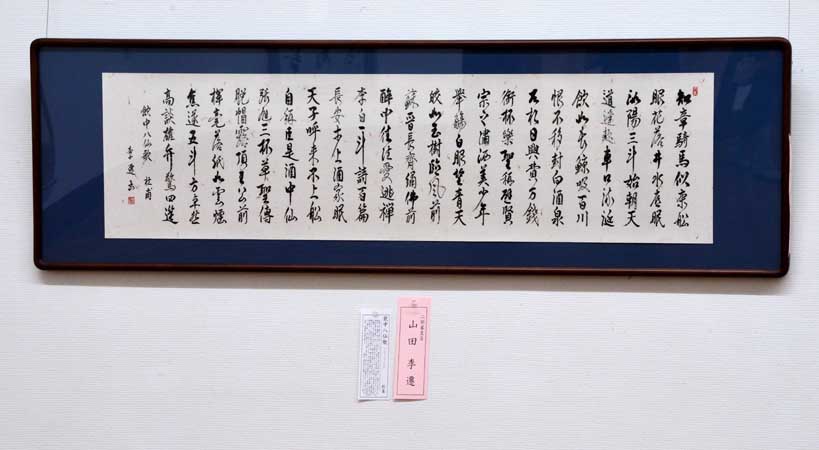 知章騎馬似乗船
眼花落井水底眠
汝陽三斗始朝天
道逢麹車口流涎
飲如長鯨吸百川
恨不移封向酒泉
左相日興費万銭
銜杯樂聖稱避賢
宗之瀟洒美少年
擧觴白眼望青天
皎如玉樹臨風前
蘇晋長齋繡佛前
醉中往往愛逃禪
李白一斗詩百篇
長安市上酒家眠
天子呼来不上船
自稱臣是酒中仙
張旭三杯草聖傳
脱帽露頂王公前
揮毫落紙如雲煙
焦遂五斗方卓然
高談雄弁驚四筵
飲中八仙歌 杜甫
李遷書
山田李遷
飲中八仙歌
杜甫